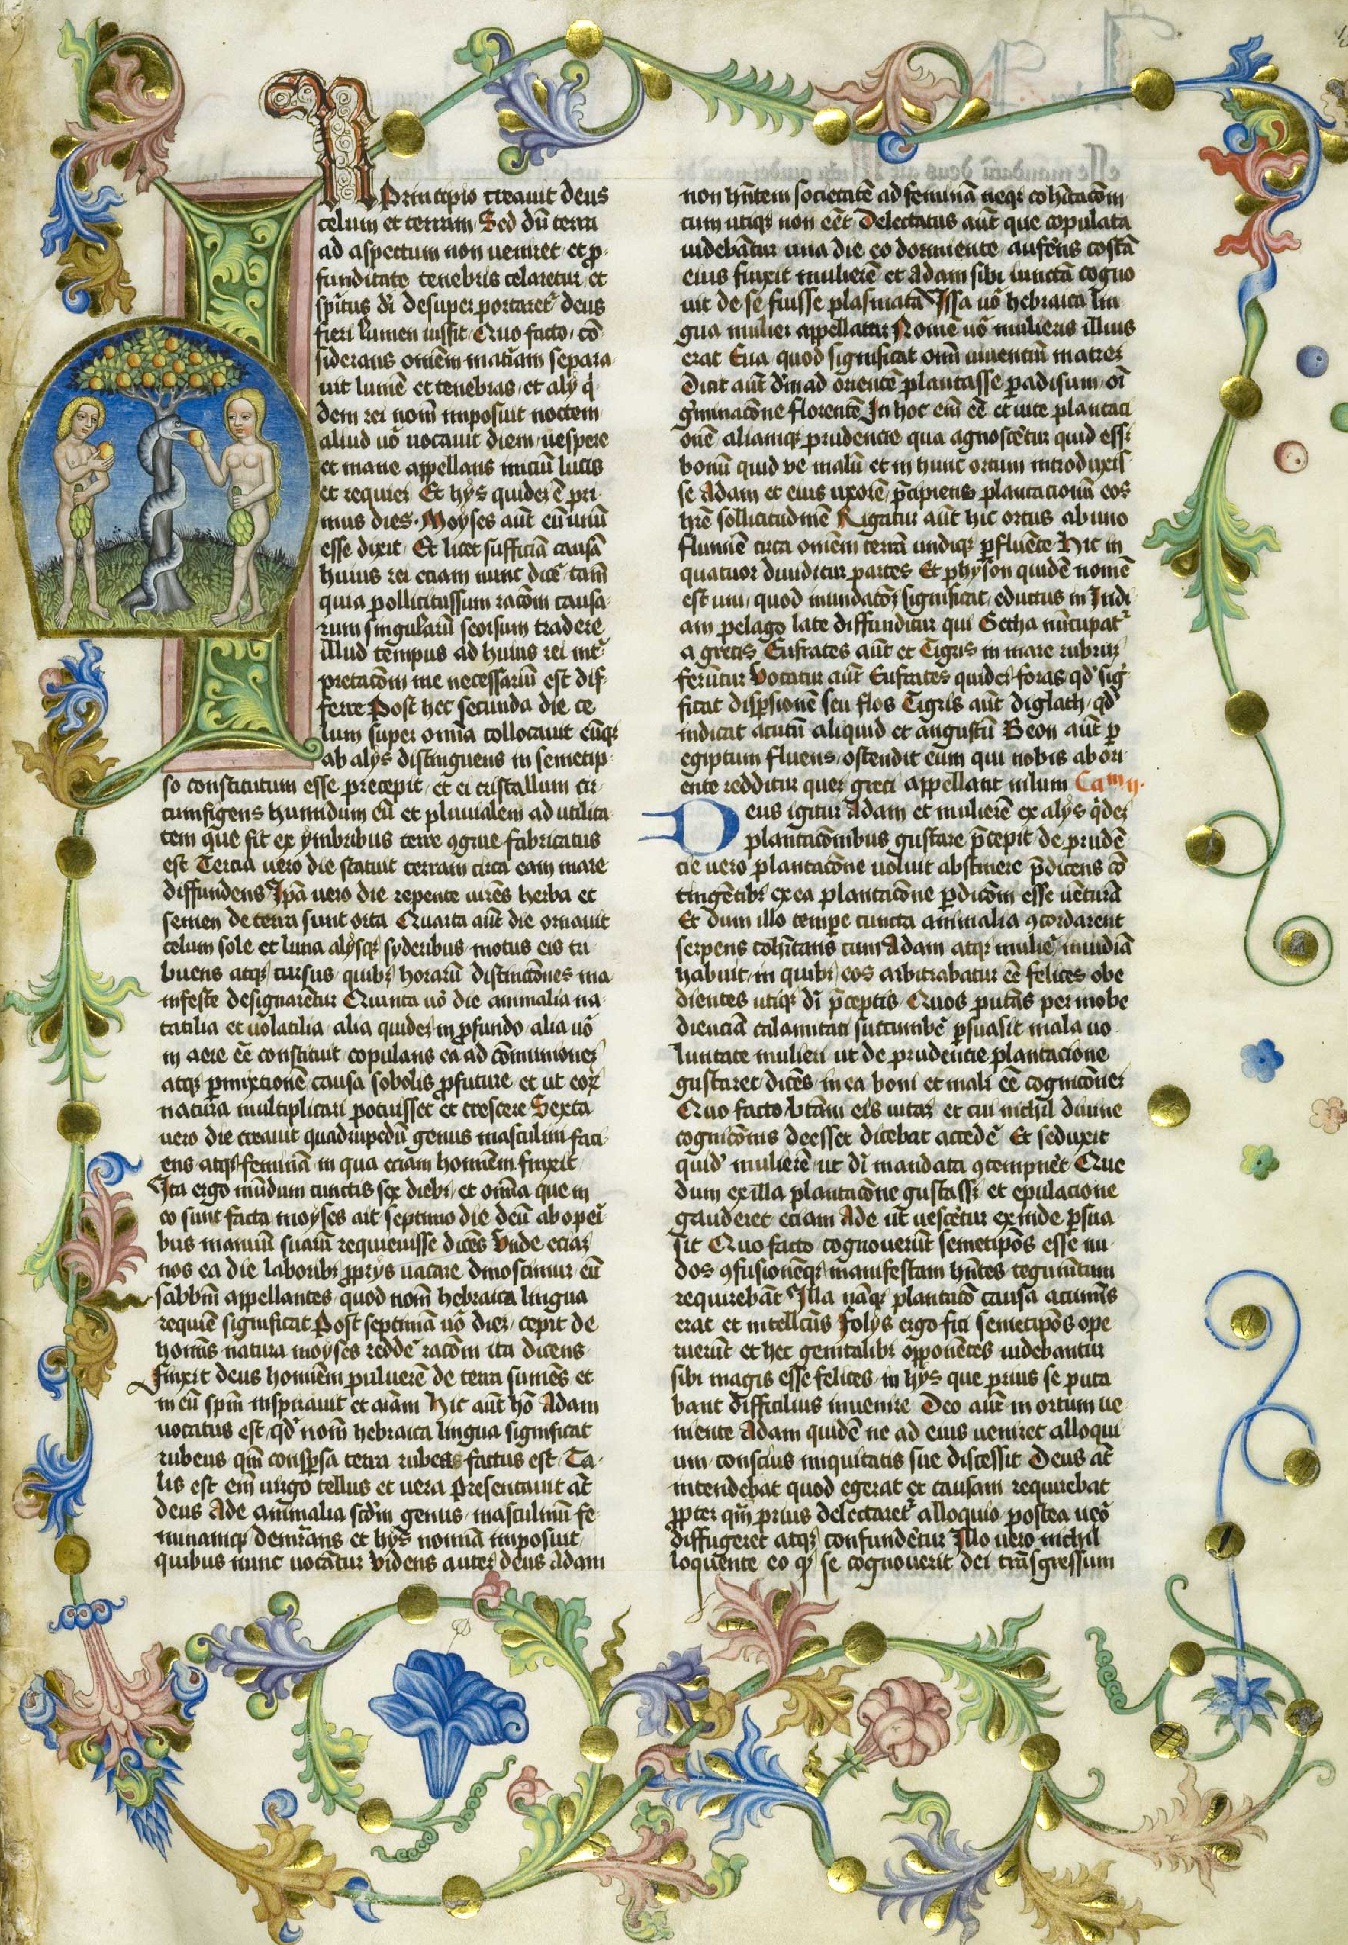 N Principio creauit deus
celum et terram Sed dū terra
ad aspectum non veniret et p̱
funditate tenebris celaretur et
sp̄itus dī desuper portaretˀ deus
fieri lumen iussit Quo facto cō
siderans om̄em mat̄iam separa
uit lumē et tenebras et alijs q̄
dem rei nom̄ imposuit noctem
aliud uō uocauit diem uespere
et mane appellans iniciū lucis
et requiei Et hijs quidē ē pri
mus dies Moyses aūt eū unū
esse dixit Et licet sufficiā causā
huius rei eciam nunc dicē tam̄
quia pollicitus sum rac̄om causa
rum singularū seorsum tradere
illud tempus ad huius rei intˀ
pretac̄om me necessariū est dif
ferre Post hec secunda die ce
lum super om̄ia collocauit eūqꝫ
ab alijs distinguens in semetip
so constitutum esse precepit et ei cristallum cir
cumfigens humidum eū et pluuialem ad utilita
tem que fit ex ymbribus terre ꝯgrue fabricatus
est Tercia uero die statuit terram circa eam mare
diffundens Ip̄a uero die repente uirēs herba et
semen de terra sunt orta Quarta aūt die ornauit
celum sole et luna alijsqꝫ syderibus motus eis tri
buens atqꝫ cursus quibꝫ horarū distinc̄ones ma
nifeste designarētur Quinta uō die animalia na
tatilia et uolatilia alia quideꝫ in ꝓfundo alia uō
in aere eē constituit copulans ea ad cōmunioneꝫ
atqꝫ ꝑmixtionē causa sobolis ꝓfuture et ut eoꝝ
natura multiplicari potuisset et crescere Sexta
uero die creauit quadrupedū genus masculim faci
ens atqꝫ feminā in qua eciam hominem finxit
Ita ergo mūdum cunctis sex diebꝫ et om̄ia que in
eo sunt facta moyses ait septimo die deū ab operi
bus manuū suarū requieuisse dicēs Vnde eciaꝫ
nos ea die laboribꝫ ꝓprijs uacare dinoscimur eū
sabb̄m appellantes quod nom̄ hebraica lingua
requiē significat Post septimā uō dieꝫ cepit de
hoīs natura moyses reddē rac̄om ita dicens
Finxit deus hominem puluerē de terra sumēs et
in eū sp̄m inspirauit et aīam Hic aūt hō Adam
uocatus est qd̓ nom̄ hebraica lingua significat
rubeus qm̄ conspersa terra rubea factus est Ta
lis est em̄ uirgo tellus et uera Presentauit aūt
deus Ade animalia sc̄dm genus masculinū fe
mininamqꝫ demr̄ans et hijs nomina imposuit
quibus nunc uocātur Videns auteꝫ deus Adam
non hn̄tem societatē ad feminā neqꝫ cohitac̄om
cum utiqꝫ non eēt Delectatus aūt que copulata
uidebātur una die eo dormiente auferens costā
eius finxit mulierē et Adam sibi iunctā cogno
uit de se fuisse plasmatā Issa uō hebraica lin
gua mulier appellatur Nomē uō mulieris illius
erat Eua quod significat om̄ uiuentiū matreꝫ
Dicit aūt dm̄ ad orientē plantasse ꝑadisum om̄i
gˀminac̄one florentē In hoc em̄ eē et uite plantaci
onē aliamqꝫ prudencie qua agnoscētur quid essꝫ
bonū quid ve malū et in hunc ortum introduxis
se Adam et eius uxorē p̄cipiens plantacionū eos
hr̄e sollicitudinē Rigatur aūt hic ortus ab uno
flumīe circa om̄em terrā undiqꝫ ꝑfluēte Hic in
quatuor diuiditur partes Et physon quidē nomē
est uni quod inundac̄oꝫ significat eductus in Indi
am pelago late diffunditur qui Getha nūcupatˀ
a grecis Eufrates aūt et Tigris in mare rubrum
ferūtur Vocatur aūt Eufrates quideꝫ foras qd̓ sig
ficat disꝑsionē seu flos Tigris aūt diglath qd̓
indicat acutū aliquid et angustū Geon aūt ꝑ
egiptum fluens ostendit eum qui nobis ab ori
ente redditur queꝫ greci appellant nilum Cam ij.
Deus igitur Adam et mulierē ex alijs q̄deꝫ
plantac̄onibus gustare p̄cepit de prudē
cie uero plantac̄one uoluit abstinere p̄dicens cō
tingētibꝫ ex ea plantac̄one ꝑdic̄om esse uēturā
Et dum illo tempe cuncta animalia ꝯcordarent
serpens cohītans cum Adam atqꝫ mulierˀ inuidiā
habuit in quibꝫ eos arbitrabatur eē felices obe
dientes utiqꝫ dī p̄ceptis Quos putās per inobe
dienciā calamitati succumbē ꝑsuasit mala uo
luntate mulieri ut de prudencie plantacione
gustaret dicēs in ea boni et mali eē cognic̄oneꝫ
Quo facto btām eis uitaꝫ et cui nichil diuine
cognic̄onis deesset dicebat accedē Et seduxit
quidē mulierē ut dī mandata ꝯtempnēt Que
dum ex illa plantac̄one gustassꝫ et epulacione
gauderet eciam Ade ut uescētur exinde ꝑsua
sit Quo facto cognouerūt semetip̄os esse nu
dos ꝯfusionēqꝫ manifestam hn̄tes tegumtum
requirebāt Illa nāqꝫ plantac̄o causa acumīs
erat et intellc̄us Folijs ergo fici semetip̄os ope
ruerūt et hec genitalibꝫ opponētes uidebantur
sibi magis esse felices in hijs que prius se puta
bant difficilius inuenire Deo aūt in ortum ue
niente Adam quidē ne ad eius ueniret alloqui
um conscius iniquitatis sue discessit Deus aūt
intendebat quod egerat et causam requirebat
ꝓpter qm̄ prius delectaretˀ alloquio postea uero
diffugeret atqꝫ confundētur Illo uero nichil
loquente eo qꝫ se cognouerit dei trāsgressum